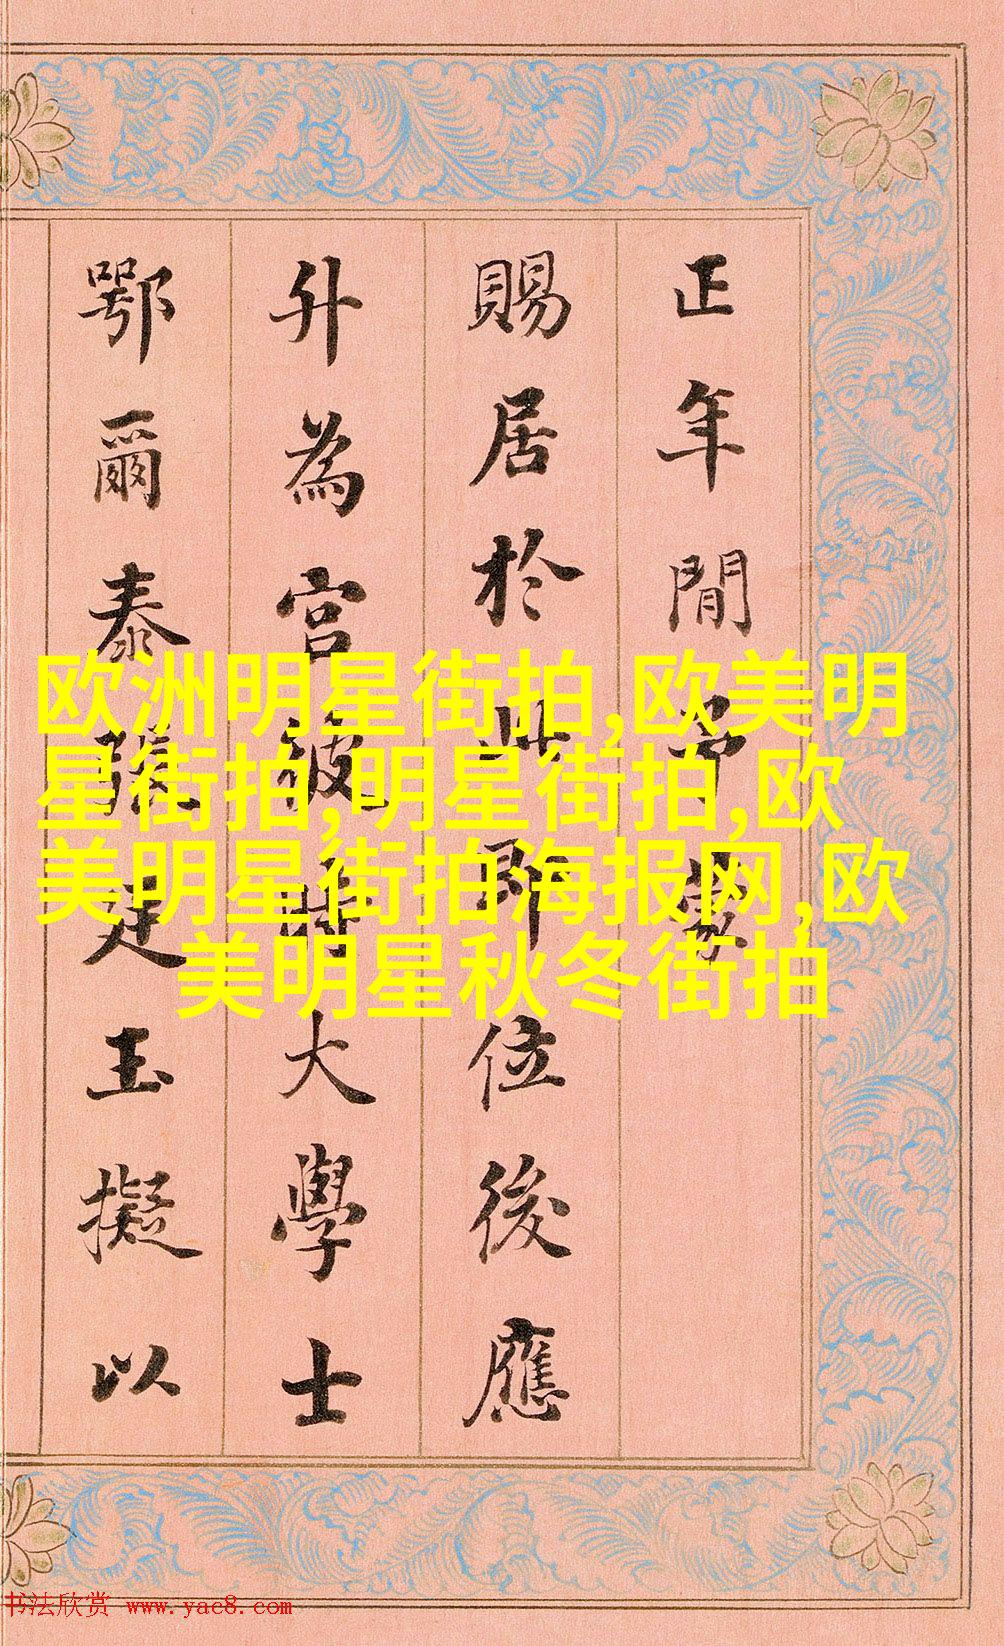 正年間命蒙
賜居於此即位後應
升為宮彼時大學士
鄂爾泰張廷玉擬以
欧洲明星街拍,欧美明
星街拍,明星街拍,欧
美明星街拍海报网,欧
美明星秋冬街拍
书法欣赏 www.yac8.com